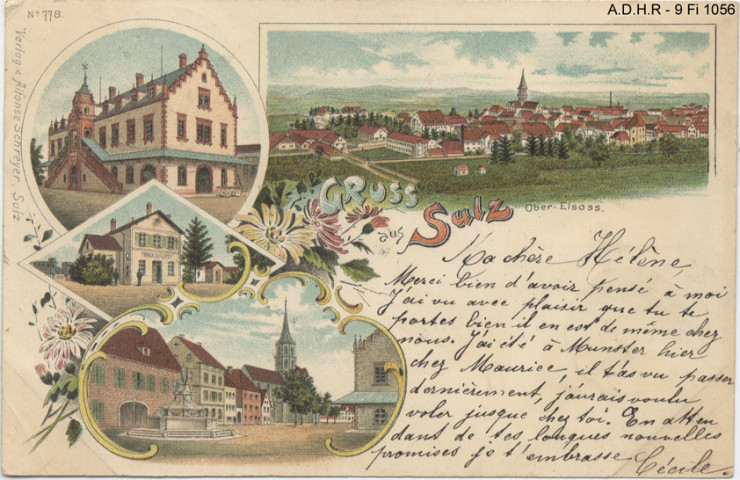 Nº 778.
A.D.H.R - 9 Fi 1056
Verlag v. Alfonse Schreyer, Sulz
Gruss
aus Sulz
Ober-Elsass.
Ma chère Hélène,
Merci bien d'avoir pensé à moi
J'ai vu avec plaisir que tu te
portes bien il en est de même chez
nous. J'ai été à Munster hier
chez Maurice, il t'as vu passer
dernièrement, j'aurais voulu
voler jusque chez toi. En atten
dant de tes longues nouvelles
promises je t'embrasse
Cécile.